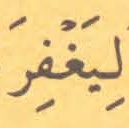 لِيَغْفِرَ